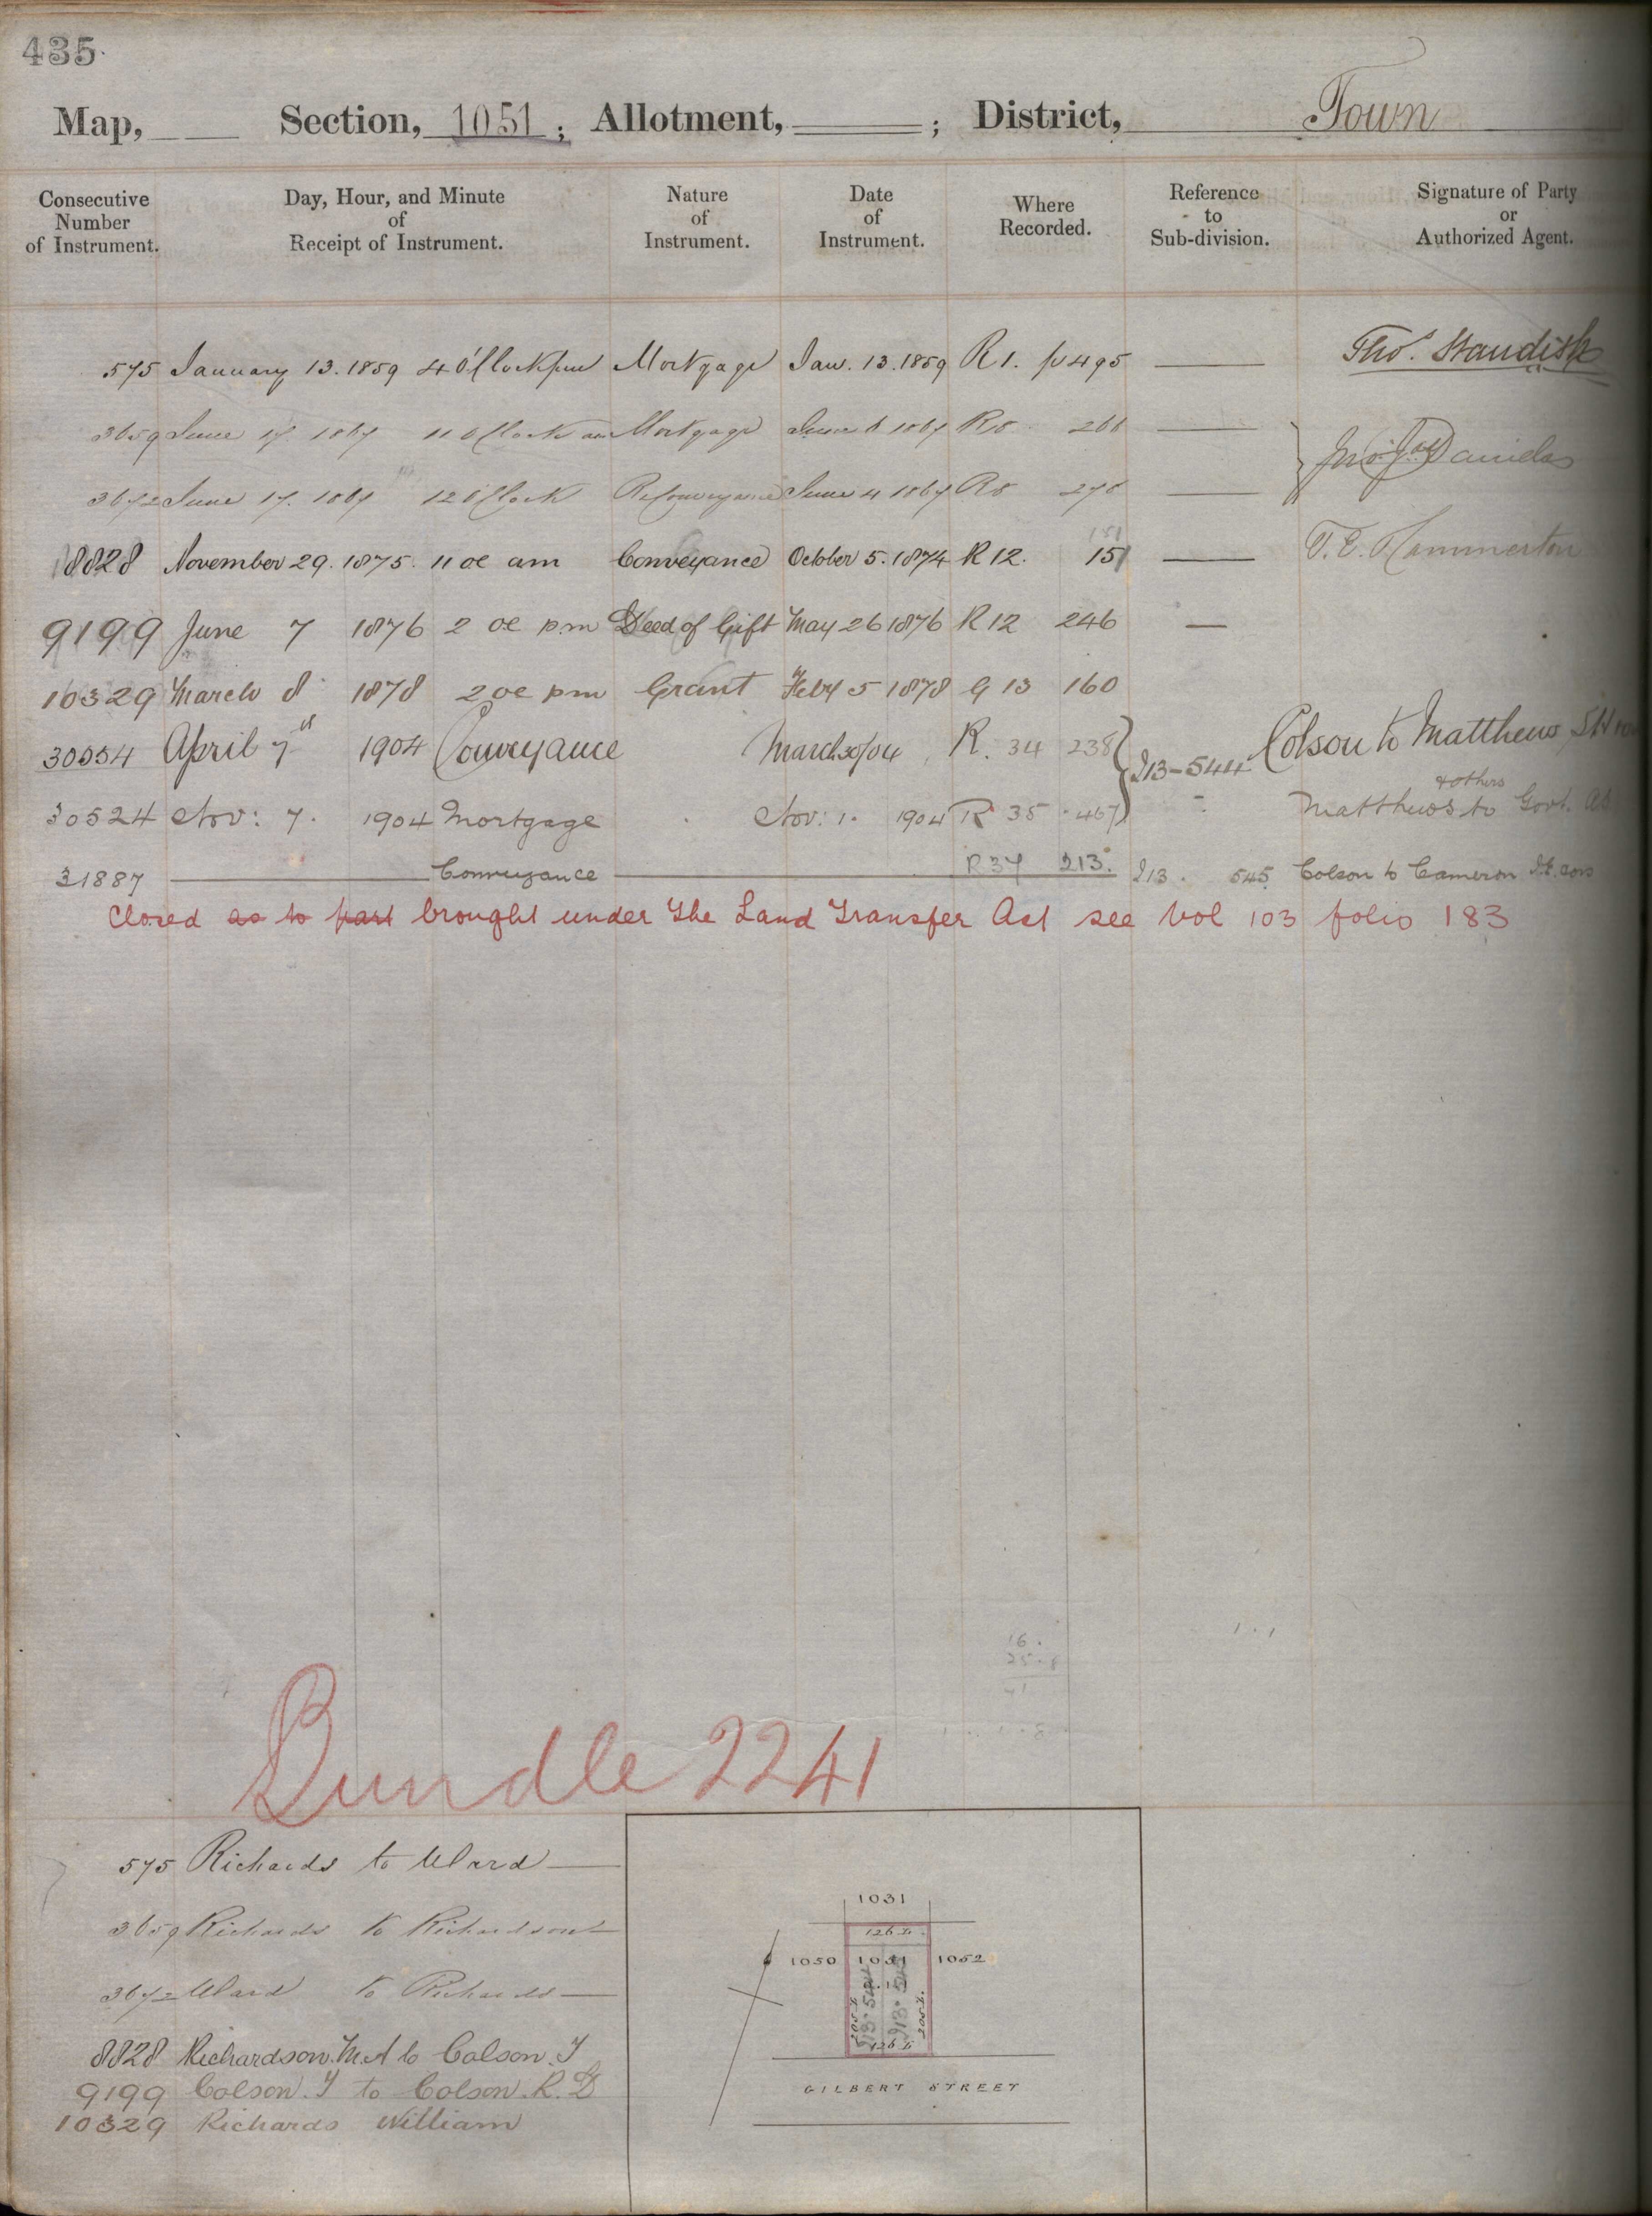 435.
Map, Section, 1051; Allotment, ; District, Town
Consecutive Number of Instrument.
Day, Hour, and Minute of Receipt of Instrument.
Nature of Instrument.
Date of Instrument.
Where Recorded.
Reference to Sub-division.
Signature of Party or Authorized Agent.
575 January 13. 1859 4 O'Clock pm Mortgage Jan. 13. 1859 R 1. p 495 Thos. Standish
3659 June 17 1867 11 O'Clock am Mortgage June 6 1867 R8 266
3672 June 17. 1867 12 O'Clock Reconveyance June 4 1867 R8 278
151
8828 November 29. 1875. 11 oc am Conveyance October 5. 1874 R 12. 151 T. E. Hammerton
9199 June 7 1876 2 oc pm Deed of Gift May 26 1876 R 12 246
10329 March 8 1878 2 oc pm Grant Feby 5 1878 G 13 160
April 7th 1904 Conveyance March 30/04 R. 34 238 I13-544 Colson to Matthews
& others
30524 Nov: 7. 1904 Mortgage Nov: 1. 1904 R 35 467 Matthews to Govt.
31887 Conveyance R 37 213. I13. 545 Colson to Cameron
Closed as to part brought under the Land Transfer Act see Vol 103 folio 183
16.
Bundle 2241
575 Richards to Ward
3659 Richards to Richardson
3672 Ward to Richards
8828 Richardson. M.A to Colson. J
9199 Colson. J to Colson. R. D
10329 Richards William
1031
126 L
1050 1051 1052
205 L I13. 544 I13. 545 205 L.
126 L
GILBERT STREET